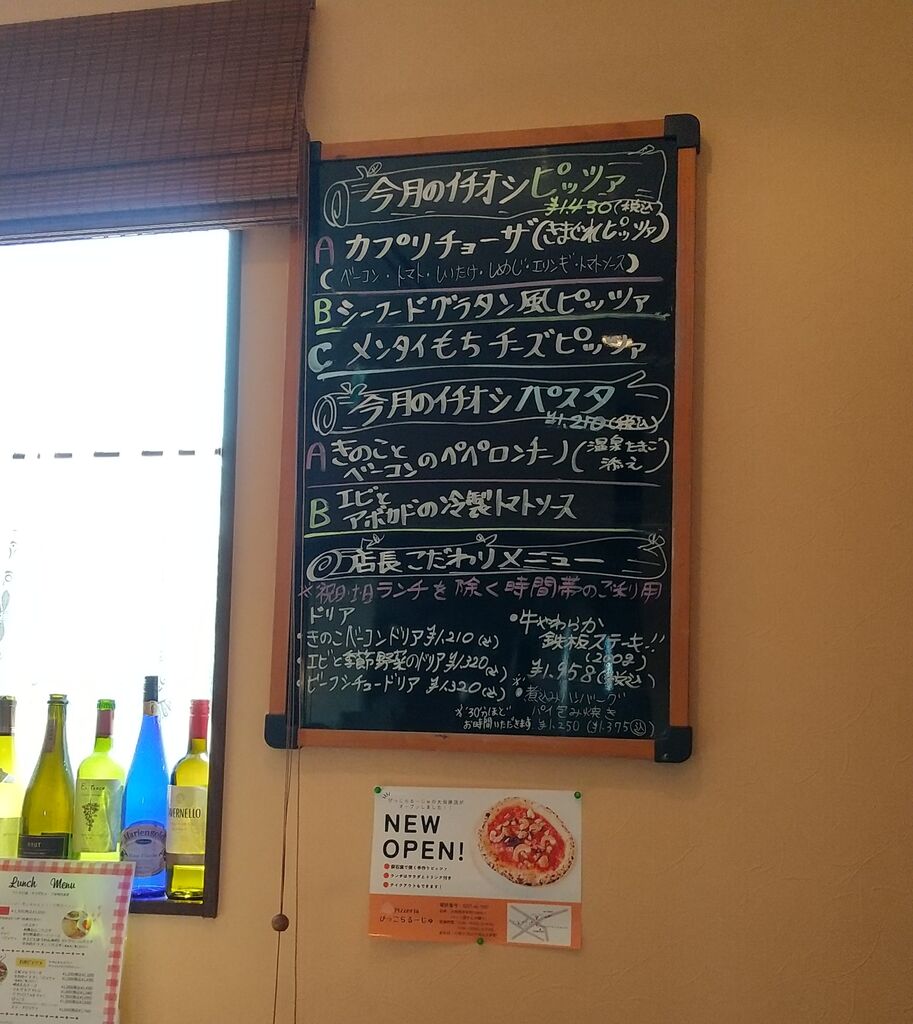 今月のイチオシピッツァ
¥1.430(税込)
A カプリチョーザ(きまぐれピッツァ)
(ベーコン・トマト・しいたけ・しめじ・エリンギ・トマトソース)
B シーフードグラタン風ピッツァ
C メンタイもちチーズピッツァ
今月のイチオシパスタ
¥1.210(税込)
A きのことベーコンのペペロンチーノ(温泉たまご添え)
B エビとアボカドの冷製トマトソース
店長こだわりメニュー
※祝日・土日ランチを除く時間帯のご利用
ドリア
・きのこベーコンドリア¥1,210(込)
・エビと季節野菜のドリア¥1,320(込)
・ビーフシチュードリア ¥1,320(込)
・牛やわらか
鉄板ステーキ!!
(200g)
¥1.958(税込)
・煮込みハンバーグ
パイ包み焼き
※30分ほど
お時間いただきます
¥1.250 (¥1.375込)
BRUT
Mariengold
VERNELLO
Lunch Menu
オープンしました!
NEW
OPEN!
薪石窯で焼く手作りピッツァ
ランチはサラダとドリンク付き
テイクアウトもできます!
Pizzeria
ぴっころるーじゅ